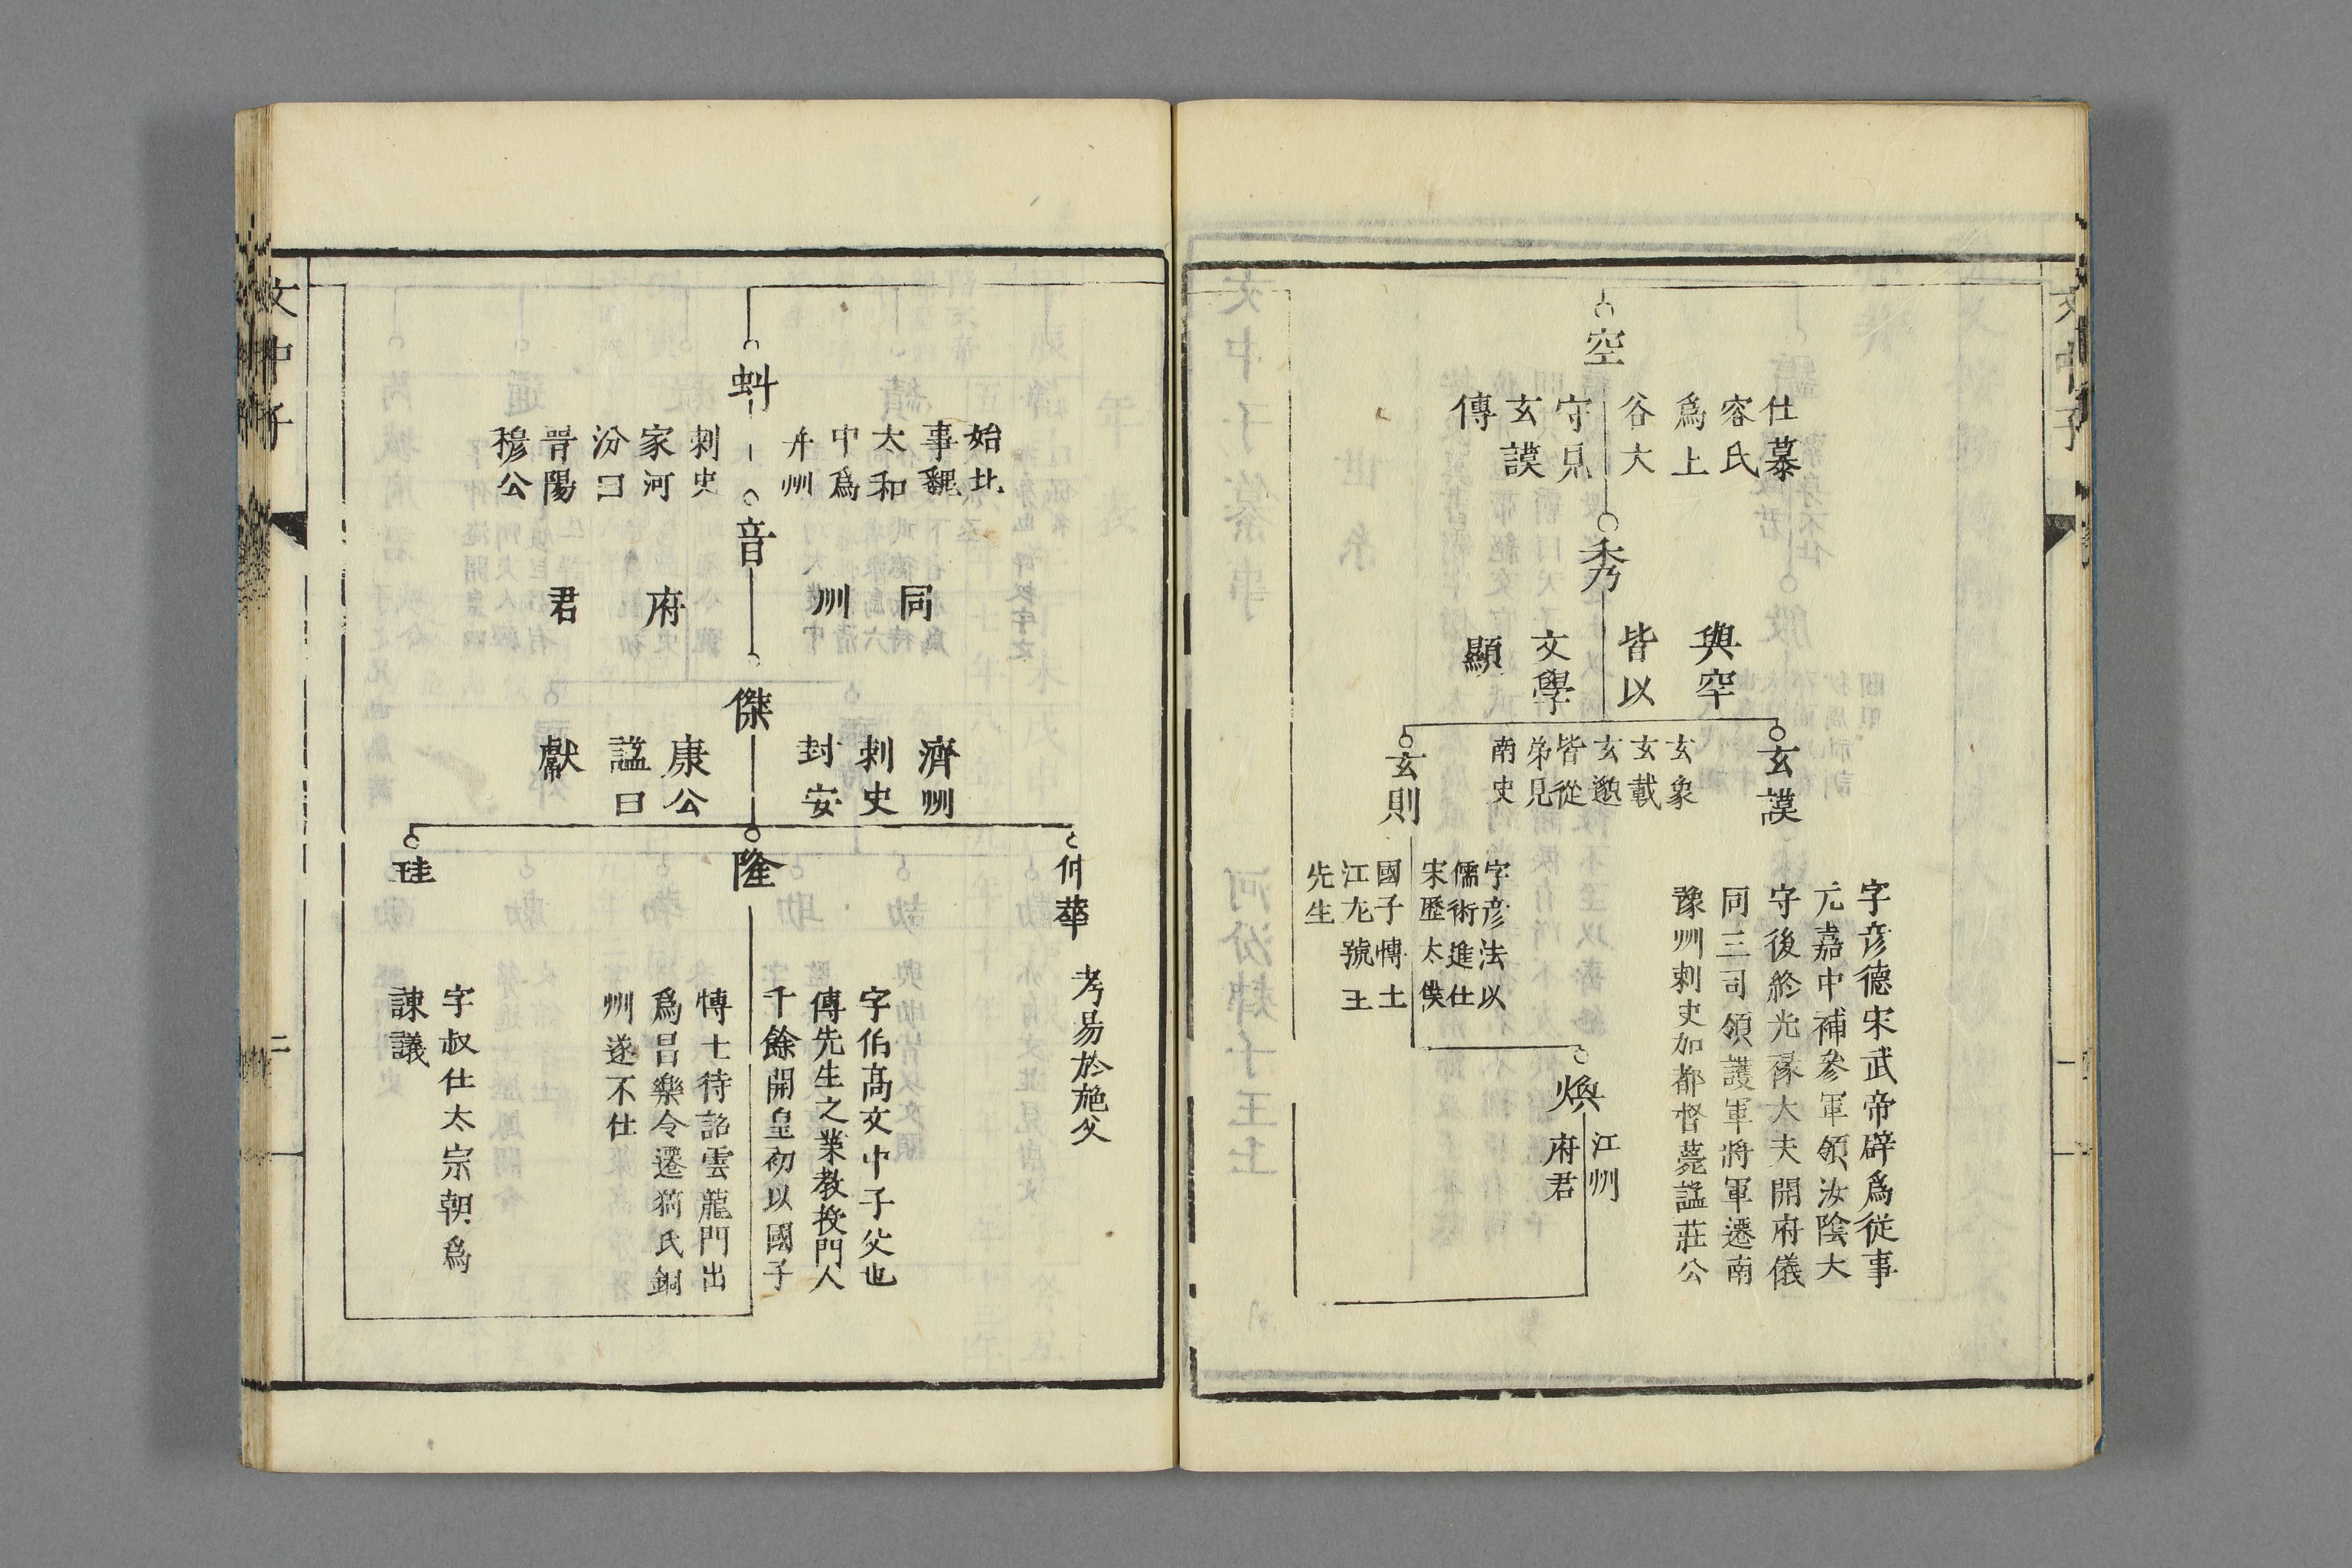 空
仕慕
容氏
爲上
谷大
守見
玄謨
傳
秀
與空
皆以
文學
顯
玄謨
字彦德宋武帝辟爲從事
元嘉中補參軍領汝陰大
守後終光祿大夫開府儀
同三司領護軍將軍遷南
豫州刺史加都督薨謚莊公
玄象
玄載
玄邈
皆從
弟見
南史
玄則
字彦法以
儒術進仕
宋歷太僕
國子博士
江左號王
先生
煥
江州
府君
虯
始北
事魏
太和
中爲
并州
刺史
家河
汾曰
晉陽
穆公
音
同
州
府
君
傑
濟州
刺史
封安
康公
謚曰
獻
仲華
考易於䒾父
隆
字伯高文中子父也
傳先生之業教授門人
千餘開皇初以國子
博士待詔雲龍門出
爲昌樂令遷猗氏銅
州遂不仕
珪
字叔仕太宗朝爲
諫議
文中子
二